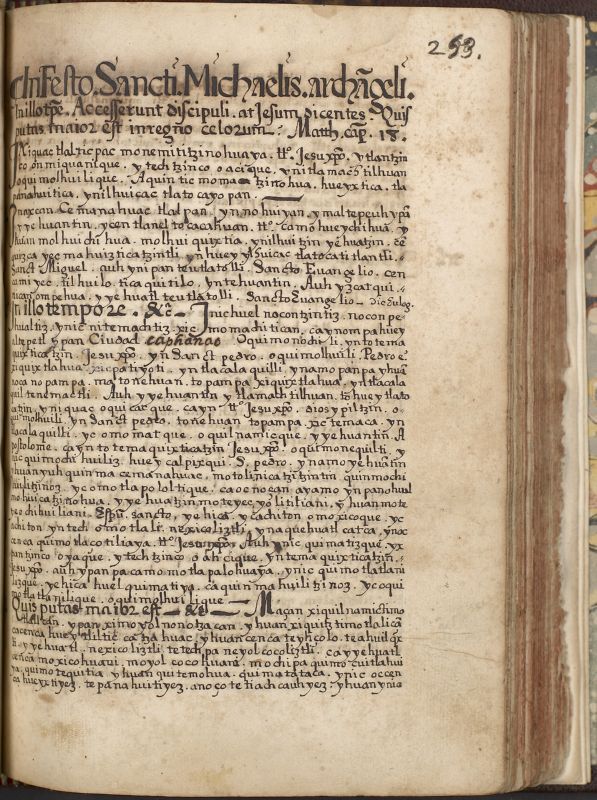 253.
In Festo. Sancti. Michaelis. archāgeli.
In illo tp̄e. Accesserunt discipuli. at Jesum dicentes. Quis
putas maior est in regno celorum. Matth. cap. 18.
Jxiquac tlalticpac monemititzinohuaya. tto. Jesu xp̄o. ytlantzin
co onmiquanique. ytechtzinco oacique, ynitlamachtilhuan
oquimolhuilique. Aquin ticmomachtzinohua. hueyxtica. tla
panahuitica. ynilhuicac tlatocayopan.
Jnoxcan Cemanahuac tlalpan. ynnohuiyan. ymaltepeuh ypā
yyehuantin. ycentlanel tocacahuan. tto. camo hueychihua. y
huan molhuichihua. molhuiquixtia. ynilhuitzin yehuatzin. cē
quizca yecmahuizticatzintli. ynhuey ylhuicac tlatocatitlantli.
Sanct Miguel. auh ynipan teutlatolli. Sancto Euangelio. cen
camiyec. tilhuilo. tica quitilo. yntehuantin. Auh yzcatqui.
nican ompehua. yyehuatl teutlatolli. Sancto Euangelio dic. Eulog.
In illo tempore. &c. Jnichuel nocontzintiz. noconpe
hualtiz. ynic nitemachtiz. xicmomachitican. caynompa huey
altepetl ypan Ciudad caphanao Oquimonochili. ynto tema
quixticatzin. Jesu xp̄o. yn Sanct pedro. oquimolhuili. Pedro
xiquixtlahua patiyoti. yntlacalaquilli. ynamo panpa yhuā
noca nopampa. ma tonehuan. topampa xiquixtlahua. yntlacala
quil tenemactli. Auh yyehuantin ytlamachtilhuan. tzhueytlato
catzin. yniquac oquicacque. cayn. tto. Jesu xp̄o. dios ypiltzin. o
quimolhuili. yn Sanct pedro. tonehuan topampa. xictemaca. yn
tlacalaquilti. yc omomatque. oquilnamicque. yyehuantin. A
postolome. cayn totemaquixticatzin. Jesu xp̄o. oquimonequilti. y
nic quimochihuiliz. huey calpixqui. S. pedro. ynamo yehuātin
yhuan yuhquinma cemanahuac. motolinicatzitzintin. quinmochi
huilitzinoz. yc omotlapololtique. caoc no çan. ayamo ynpanohual
mohuicatzinohua. yyehuatzin moteyecyolitiliani. yhuan mote
yeochihuiliani. Espū. sancto, yehica. ycachiton omoxicoque. yc
achiton yntech omotlali. nexicoliztli. ynaquehuatl catca. ynoc
cenca quimotlacotiliaya. tto. Jesu xp̄o. Auh ynic quimatizque. yx
pantzinco oyaque. ytechtzinco oahcique. yntemaquixticatzin.
Jesu xp̄o. auh ypanpa camo motlapalohuaya. ynic quimotlatlani
lizque. yehica huel quimatiya. ca quinmahuilitzinoz. yc oqui
motlatlanilique. oquimolhuilique.
Quis putas maior est &c Maçan xiquilnamictimo
tlalican. ypan ximoyolnonotzacan. yhuan xiquitztimotlalicā
cacenca huey tlilticcatzahuac. yhuan cenca teyhcolo. teahuilqx
ti. yyehuatl. nexicoliztli. tetechpa neyolcocoliztli. cayyehuatl
cencā moxicohuani. moyolcocohuani. mochipa quimocuitlahui
ya, quimotequitia yhuan quitemohua. quimatataca. ynic occen
ca hueyxtiyez. tepanahuitiyez. anoço tetiachcauhyez. yhuan ynic